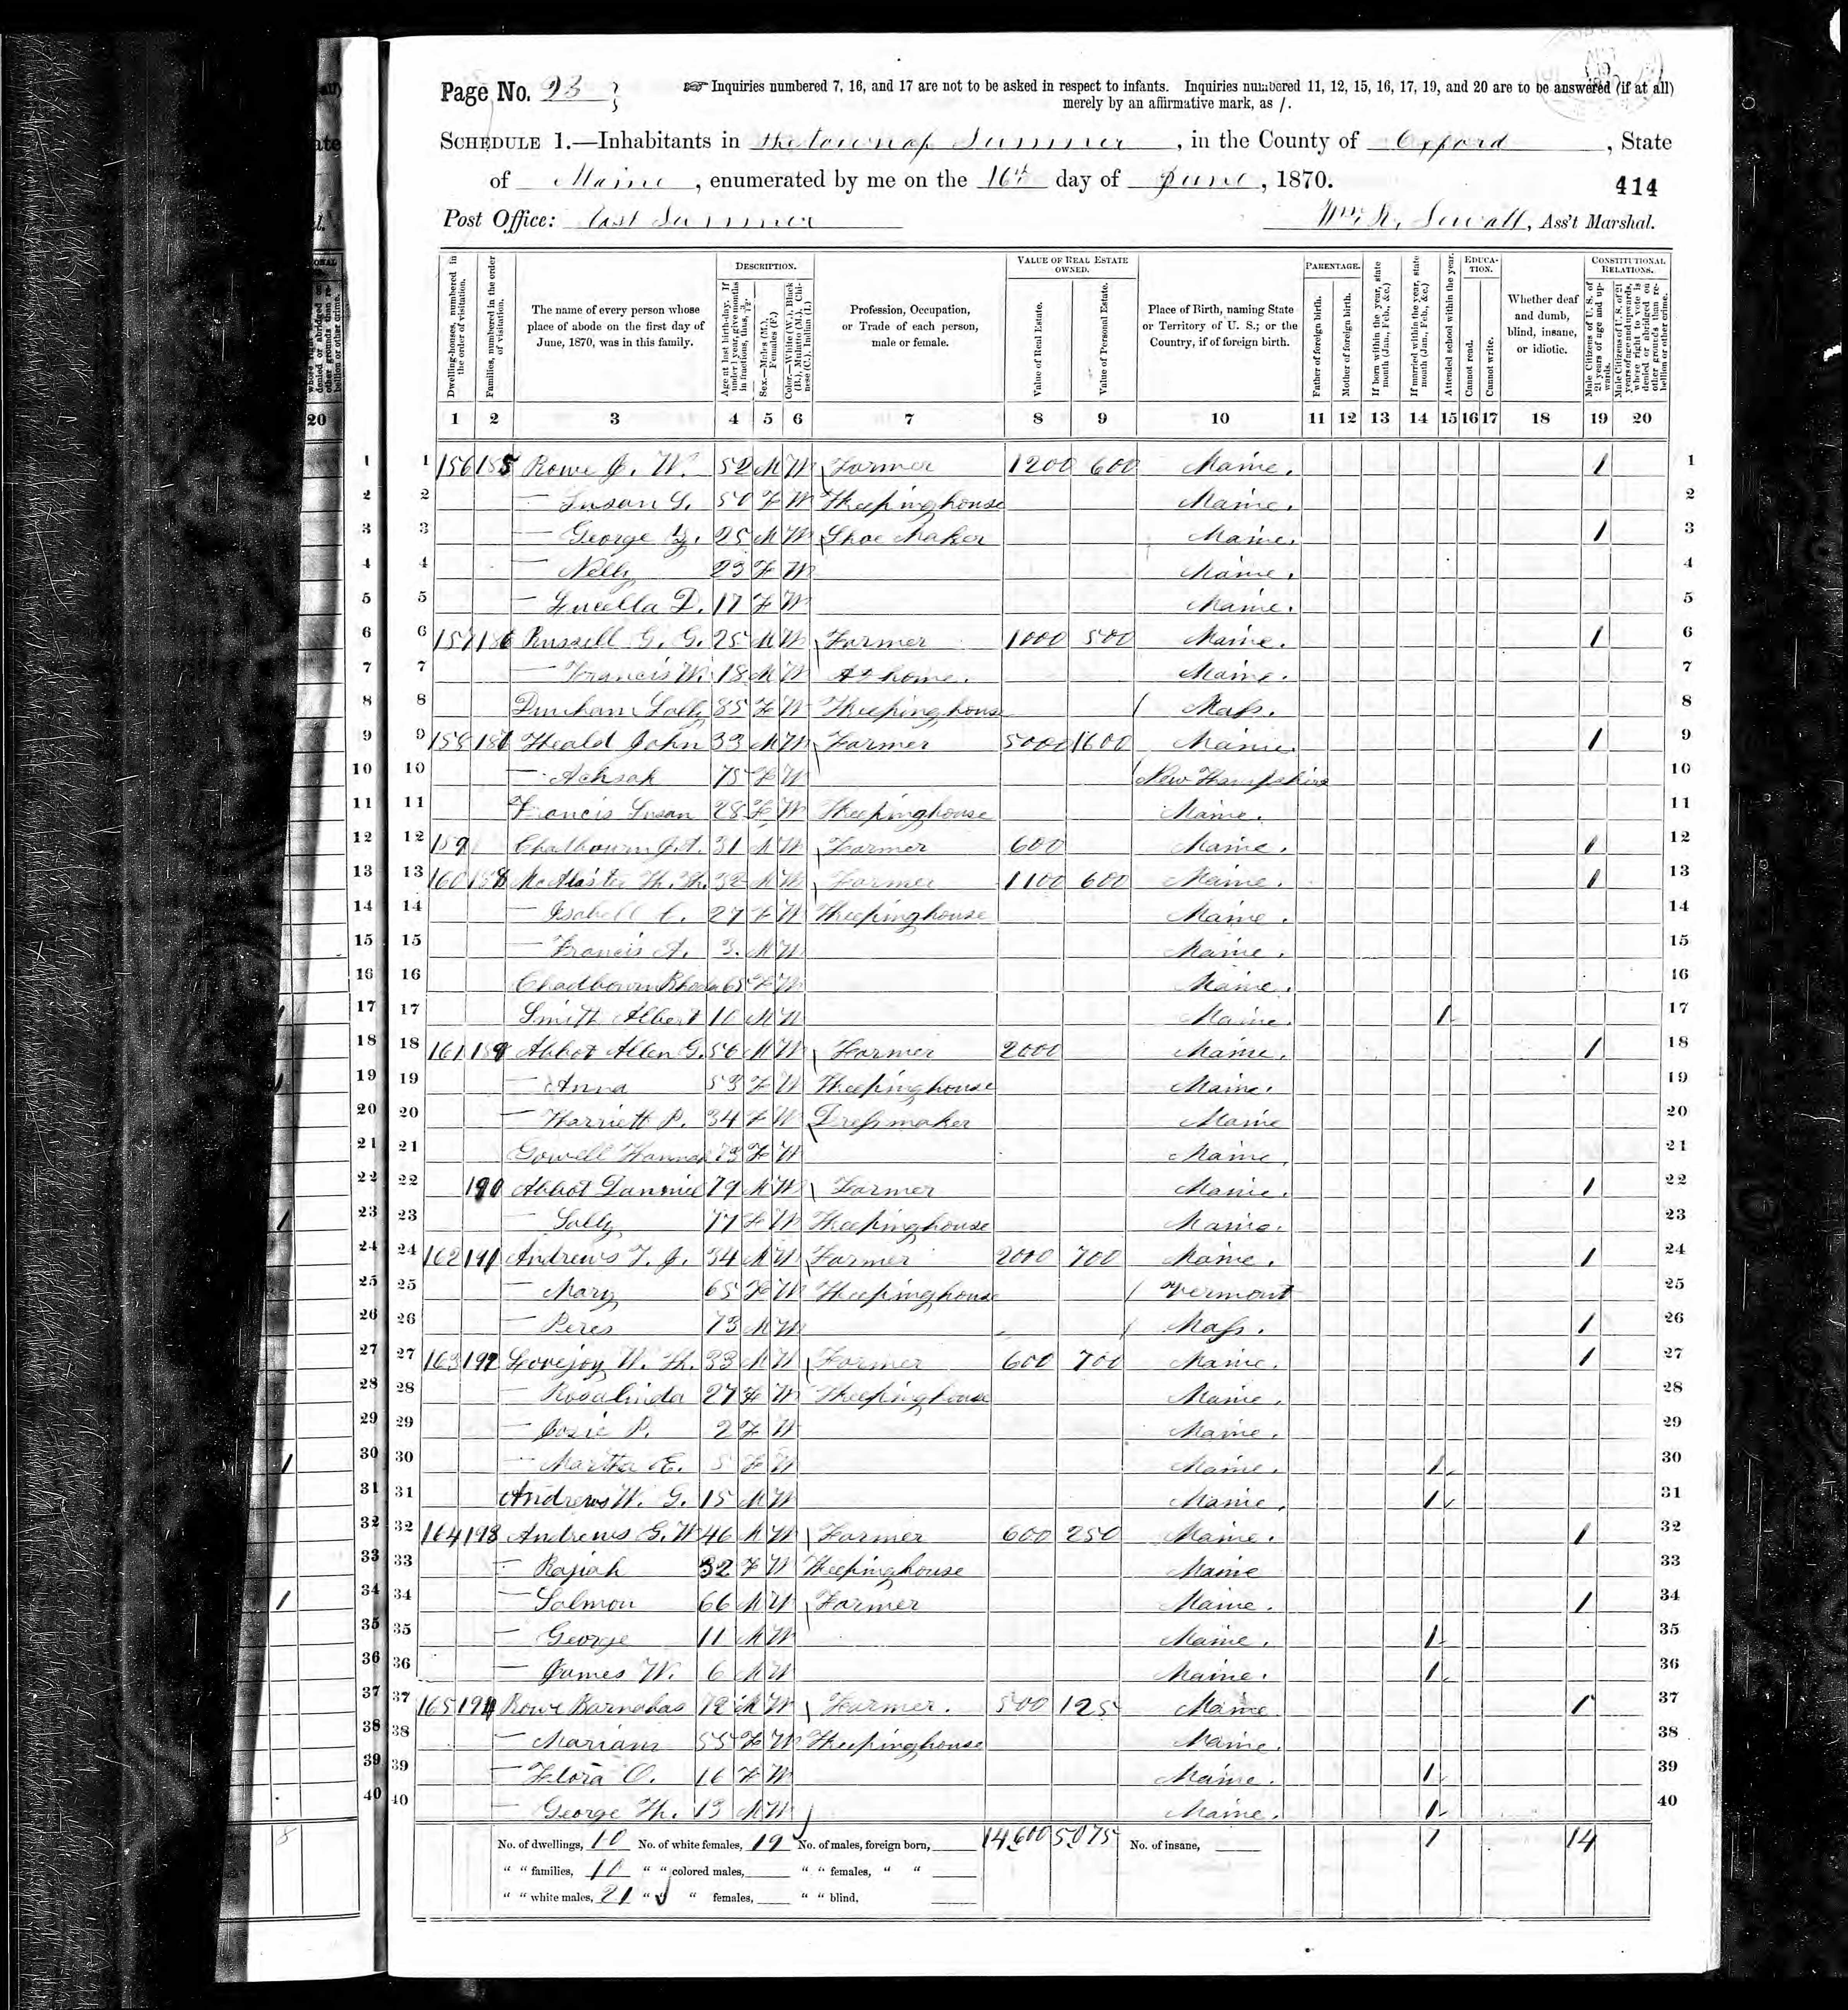 Page No. 23
☞ Inquiries numbered 7, 16, and 17 are not to be asked in respect to infants. Inquiries numbered 11, 12, 15, 16, 17, 19, and 20 are to be answered (if at all)
merely by an affirmative mark, as /.
SCHEDULE 1.—Inhabitants in the town of Sumner, in the County of Oxford, State
of Maine, enumerated by me on the 16th day of June, 1870.
414
Post Office: East Sumner
Wm. R. Sewall, Ass't Marshal.
Dwelling-houses, numbered in the order of visitation.
Families, numbered in the order of visitation.
The name of every person whose place of abode on the first day of June, 1870, was in this family.
DESCRIPTION.
Age at last birth-day. If under 1 year, give months in fractions, thus, 3/12.
Sex.—Males (M.), Females (F.)
Color.—White (W.), Black (B.), Mulatto (M.), Chinese (C.), Indian (I.)
Profession, Occupation, or Trade of each person, male or female.
VALUE OF REAL ESTATE OWNED.
Value of Real Estate.
Value of Personal Estate.
Place of Birth, naming State or Territory of U. S.; or the Country, if of foreign birth.
PARENTAGE.
Father of foreign birth.
Mother of foreign birth.
If born within the year, state month (Jan., Feb., &c.)
If married within the year, state month (Jan., Feb., &c.)
Attended school within the year.
EDUCATION.
Cannot read.
Cannot write.
Whether deaf and dumb, blind, insane, or idiotic.
CONSTITUTIONAL RELATIONS.
Male Citizens of U. S. of 21 years of age and upwards.
Male Citizens of U. S. of 21 years of age and upwards, where right to vote is denied or abridged on other grounds than rebellion or other crime.
1 2 3 4 5 6 7 8 9 10 11 12 13 14 15 16 17 18 19 20
1 156 185 Rowe J. W. 52 M W Farmer 1200 600 Maine. / 1
2 — Susan S. 50 F W Keeping house Maine. 2
3 — George 25 M W Shoe Maker Maine. / 3
4 — Nelly 23 F W Maine. 4
5 — Luella D. 17 F W Maine. 5
6 157 186 Russell G. G. 25 M W Farmer 1000 500 Maine. / 6
7 — Francis W. 18 M W At home. Maine. 7
8 Dunham Sally 85 F W Keeping house Mass. 8
9 158 187 Heald John 33 M W Farmer 5000 1600 Maine. / 9
10 — Achsah 75 F W New Hampshire 10
11 Francis Susan 28 F W Keeping house Maine. 11
12 159 Chadbourn J. A. 31 M W Farmer 600 Maine. / 12
13 160 188 McAlaster H. H. 32 M W Farmer 1100 600 Maine. / 13
14 — Isabell C. 27 F W Keeping house Maine. 14
15 — Francis A. 3. M W Maine. 15
16 Chadbourn Rhoda 65 F W Maine. 16
17 Smith Albert 10 M W Maine. / 17
18 161 189 Abbot Allen G. 56 M W Farmer 2000 Maine. / 18
19 — Anna 53 F W Keeping house Maine. 19
20 — Harriett P. 34 F W Dressmaker Maine 20
21 Gowell Hannah 73 F W Maine 21
22 190 Abbot Danniel 79 M W Farmer Maine. / 22
23 — Sally 77 F W Keeping house Maine. 23
24 162 191 Andrews T. J. 34 M W Farmer 2000 700 Maine. / 24
25 — Mary 65 F W Keeping house Vermont 25
26 — Peres 73 M W Mass. / 26
27 163 192 Lovejoy W. H. 33 M W Farmer 600 700 Maine. / 27
28 — Rosalinda 27 F W Keeping house Maine. 28
29 — Josie P. 2 F W Maine. 29
30 — Martha E. 5 F W Maine. / 30
31 Andrews W. G. 15 M W Maine. / 31
32 164 193 Andrews G. W 46 M W Farmer 600 250 Maine. / 32
33 — 32 F W Keeping house Maine 33
34 — Solmon 66 M W Farmer Maine. / 34
35 — George 11 M W Maine. / 35
36 — James W. 6 M W Maine. / 36
37 165 194 Rowe Barnabas 72 M W Farmer. 500 125 Maine / 37
38 — Mariam 55 F W Keeping house Maine. 38
39 — Flora O. 16 F W Maine. / 39
40 — George H. 13 M W Maine. / 40
No. of dwellings, 10 No. of white females, 19 No. of males, foreign born, 14,600 5,075 No. of insane, 7 14
" " families, 10 " " colored males, " " females, " "
" " white males, 21 " " females, " " blind,